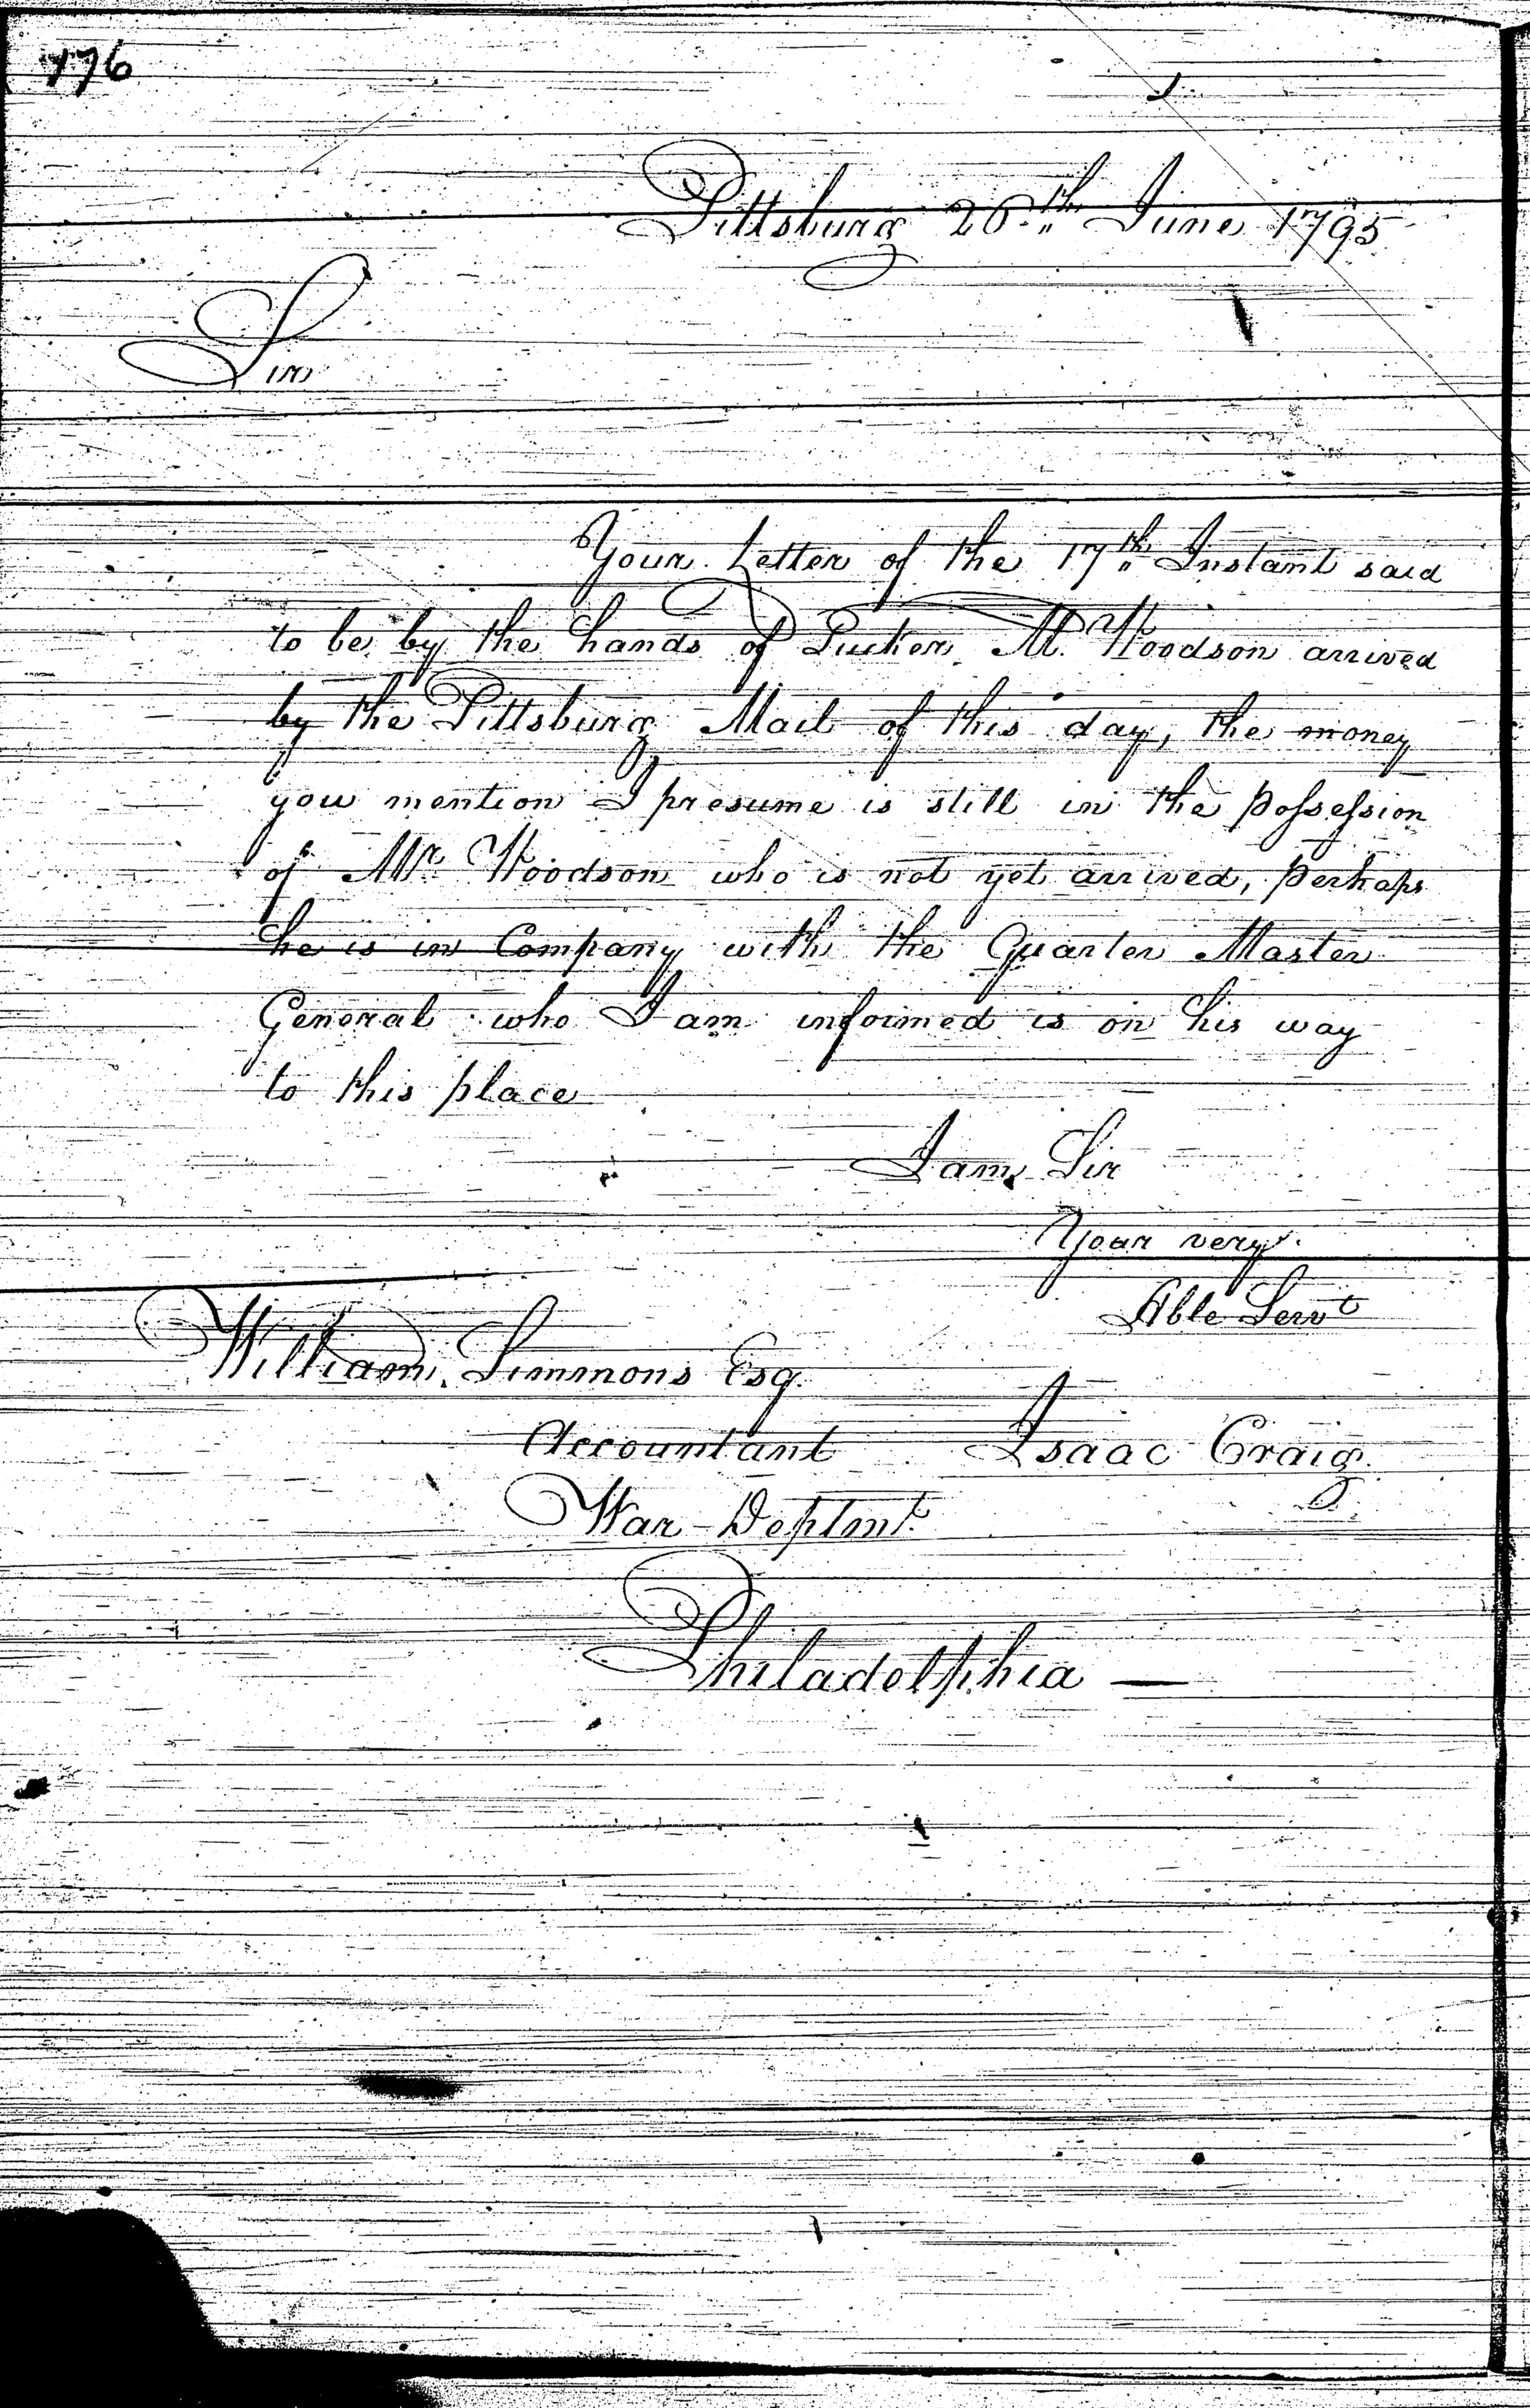 176
Pittsburg 26th June 1795
Sir
Your Letter of the 17th Instant said
to be by the hands of Tucker M. Woodson arrived
by the Pittsburg Mail of this day, the money
you mention I presume is still in the possession
of Mr. Woodson who is not yet arrived, perhaps
he is in Company with the Quarter Master
General who I am informed is on his way
to this place
I am Sir
Your very
Hble Servt
William Simmons Esq.
Accountant Isaac Craig
War Deptmt.
Philadelphia —